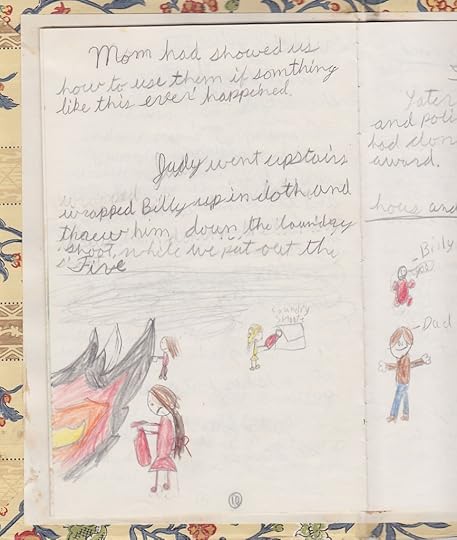 Mom had showed us
how to use them if somthing
like this ever happened.
Judy went upstairs
wrapped Billy up in cloth and
thaew him down the laundry
shoot, while we put out the
Five
Laundry
shoot
10
Yater
and poli
had don
award.
hous and
-Billy
-Dad